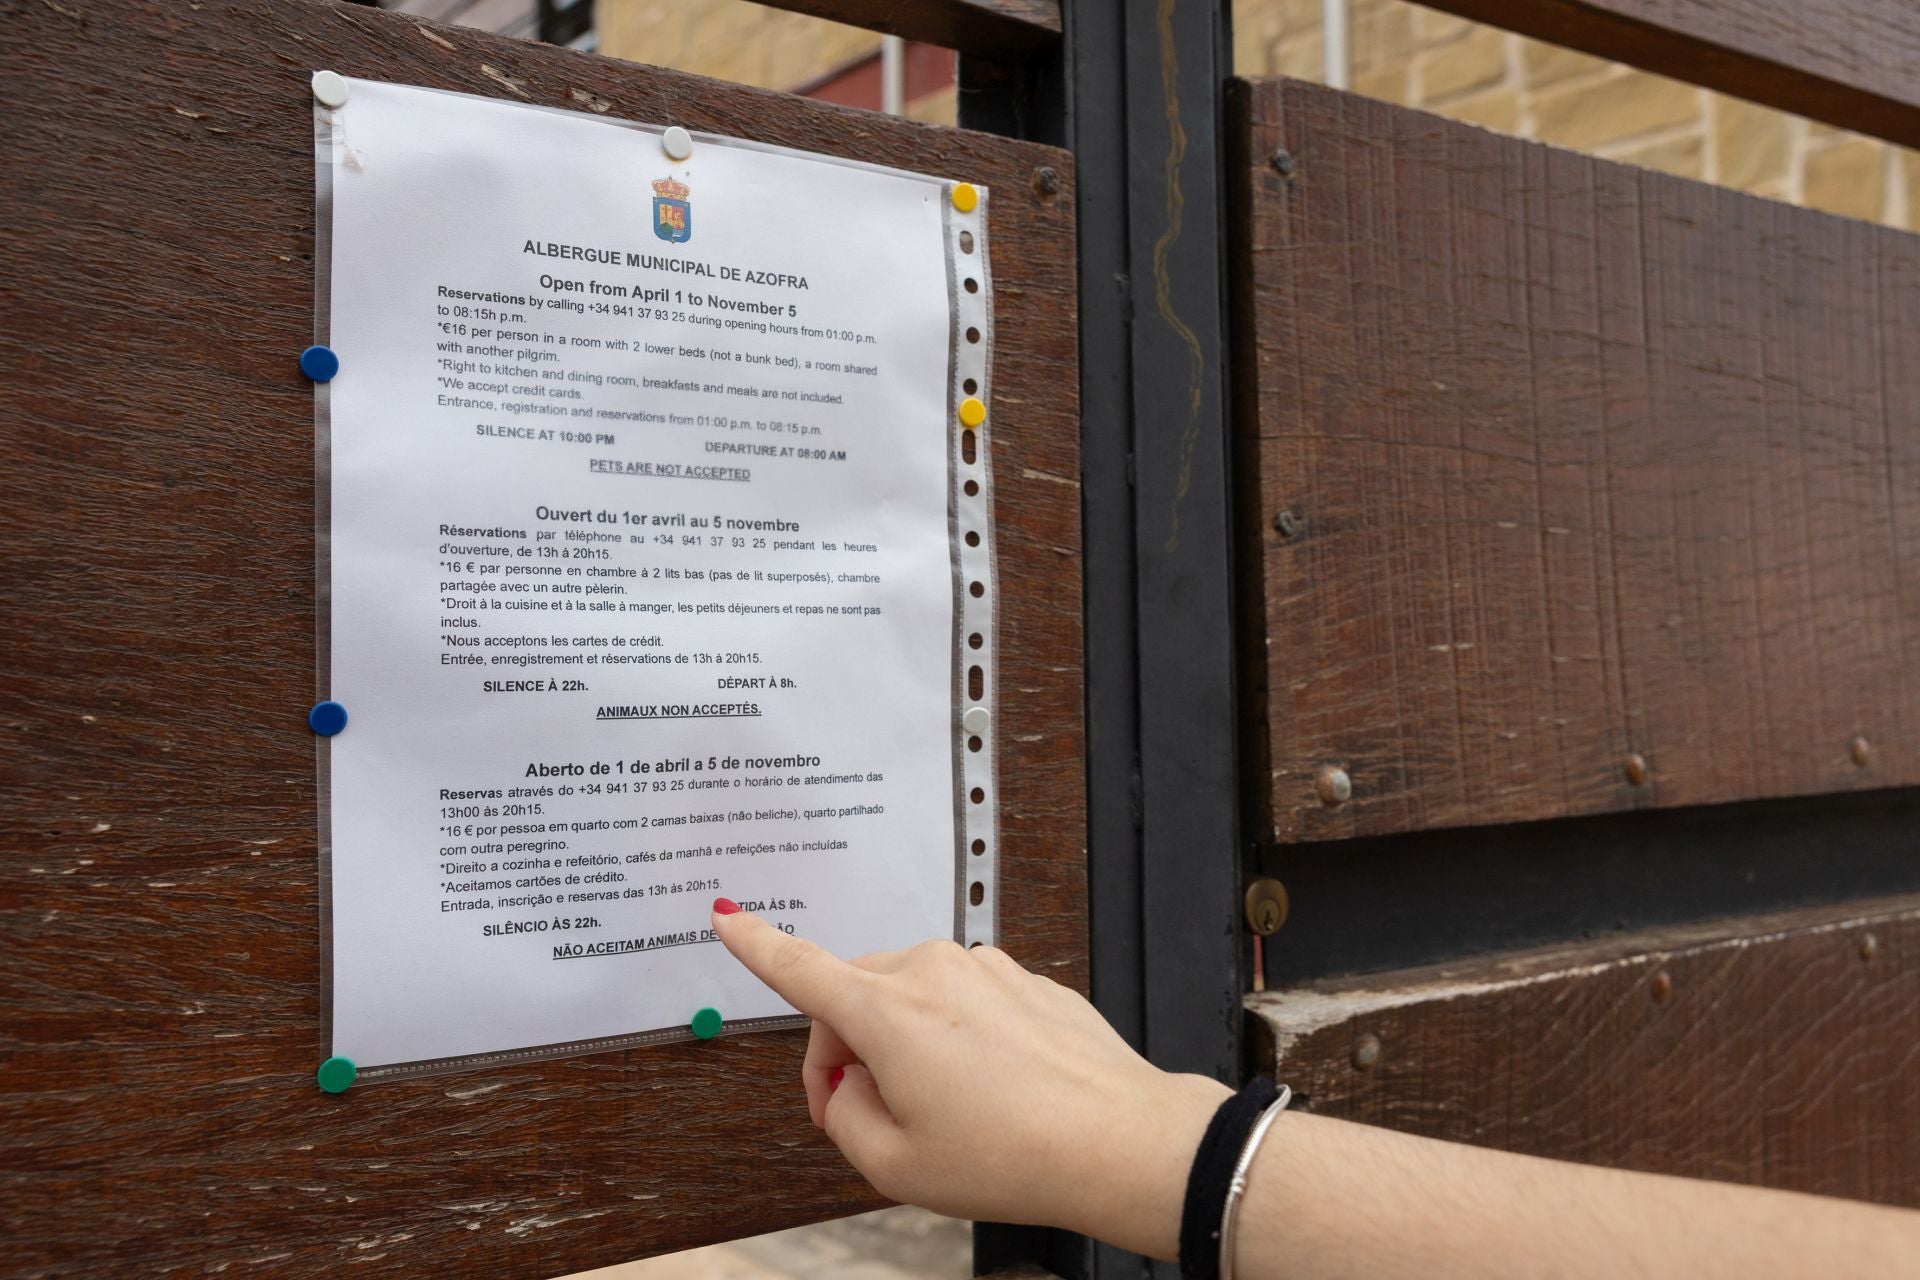 ALBERGUE MUNICIPAL DE AZOFRA
Open from April 1 to November 5
Reservations by calling +34 941 37 93 25 during opening hours from 01:00 p.m.
to 08:15h p.m.
*€16 per person in a room with 2 lower beds (not a bunk bed), a room shared
with another pilgrim.
*Right to kitchen and dining room, breakfasts and meals are not included.
*We accept credit cards.
Entrance, registration and reservations from 01:00 p.m. to 08:15 p.m.
SILENCE AT 10:00 PM DEPARTURE AT 08:00 AM
PETS ARE NOT ACCEPTED
Ouvert du 1er avril au 5 novembre
Réservations par téléphone au +34 941 37 93 25 pendant les heures
d'ouverture, de 13h à 20h15.
*16 € par personne en chambre à 2 lits bas (pas de lit superposés), chambre
partagée avec un autre pèlerin.
*Droit à la cuisine et à la salle à manger, les petits déjeuners et repas ne sont pas
inclus.
*Nous acceptons les cartes de crédit.
Entrée, enregistrement et réservations de 13h à 20h15.
SILENCE À 22h. DÉPART À 8h.
ANIMAUX NON ACCEPTÉS.
Aberto de 1 de abril a 5 de novembro
Reservas através do +34 941 37 93 25 durante o horário de atendimento das
13h00 às 20h15.
*16 € por pessoa em quarto com 2 camas baixas (não beliche), quarto partilhado
com outra peregrino.
*Direito a cozinha e refeitório, cafés da manhã e refeições não incluídas
*Aceitamos cartões de crédito.
Entrada, inscrição e reservas das 13h às 20h15.
SILÊNCIO ÀS 22h. TIDA ÀS 8h.
NÃO ACEITAM ANIMAIS DE ÃO